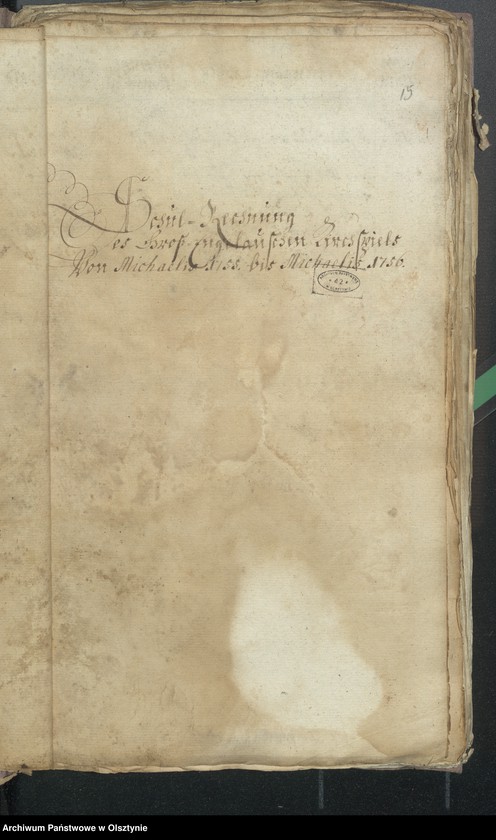 15
Schul-Rechnung
es Groß-Engelauschen Kirchspiels
Von Michaelis 1755. bis Michaelis 1756.
42
Archiwum Państwowe w Olsztynie